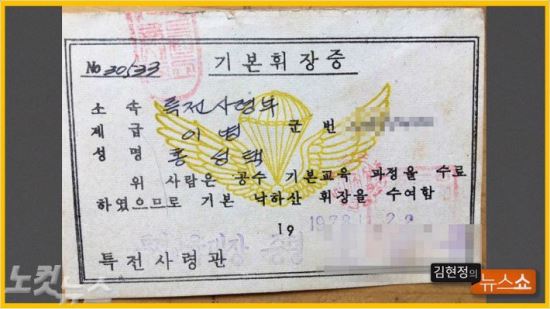 No 30533
기본휘장증
소 속 특전사령부
계 급 이병 군 번
성 명 홍성택
위 사람은 공수 기본교육 과정을 수료
하였으므로 기본 낙하산 휘장을 수여함
19
특전사령관
노컷뉴스
김현정의 뉴스쇼